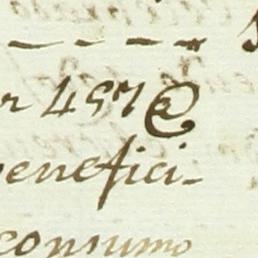 r 457 @
benefici-
consumo